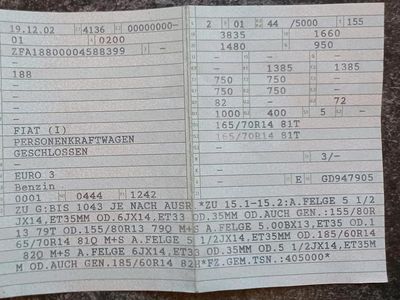 19.12.02 4136 00000000-
01 0200
ZFA18800004588399 -
-
188
-
-
-
FIAT (I)
PERSONENKRAFTWAGEN
GESCHLOSSEN
-
EURO 3
Benzin
0001 0444 1242
2 01 44 /5000 155
3835 - 1660
1480 - 950
- - -
- 1385 1385
750 750 -
750 750 -
82 - - 72
1000 400 5 -
165/70R14 81T
165/70R14 81T
-
- 3/-
-
- E GD947905
ZU G:BIS 1043 JE NACH AUSR.*ZU 15.1-15.2:A.FELGE 5 1/2
JX14,ET35MM OD.6JX14,ET33 OD.35MM OD.AUCH GEN.:155/80R
13 79T OD.155/80R13 79Q M+S A.FELGE 5.00BX13,ET35 OD.1
65/70R14 81Q M+S A.FELGE 5 1/2JX14,ET35MM OD.185/60R14
82Q M+S A.FELGE 6JX14,ET33 OD.35MM OD.5 1/2JX14,ET35M
M OD.AUCH GEN.185/60R14 82H*FZ.GEM.TSN.:405000*